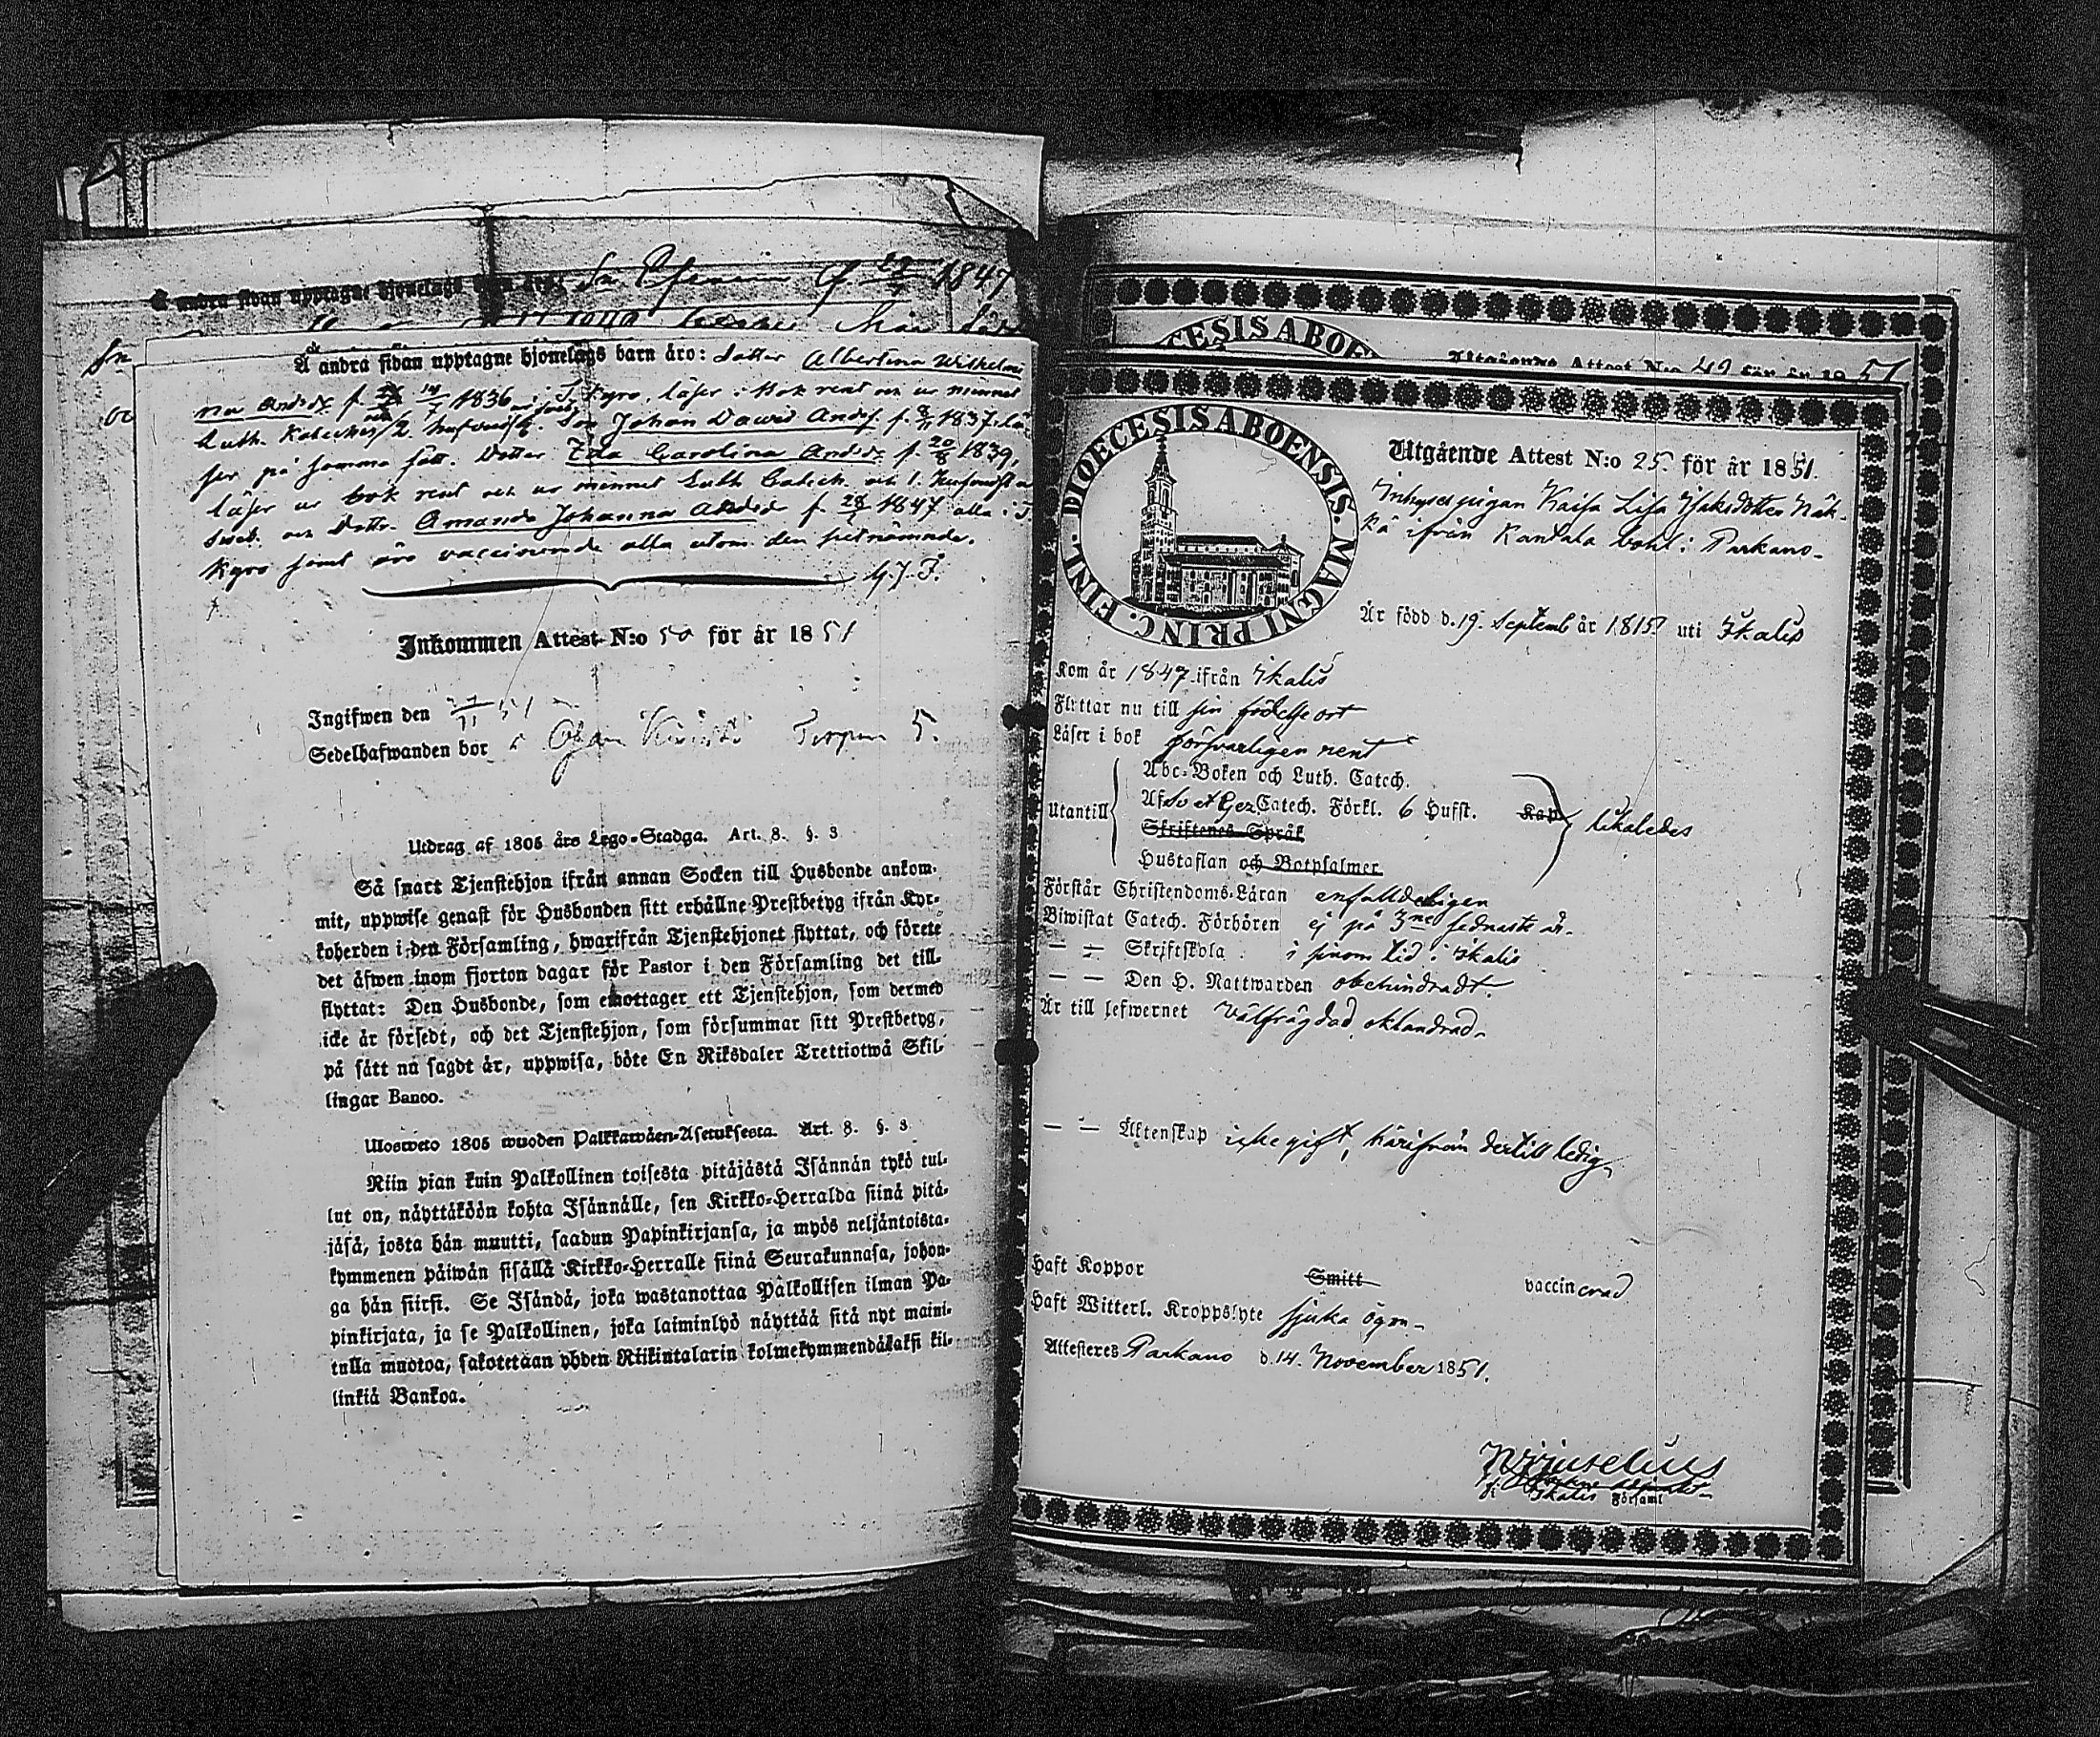 Å andra sidan upptagne hjonelags 1847
Å andra sidan upptagne hjonelags barn äro: Dotter Albertina Wilhelmi
na Andsdr f. 1836 i T. Kyro, läser i bok rent och ur minnet
Luth. Kateches Son Johan Dawid Andsf. f. 1837, lä-
ser på samma sätt. Dotter Ida Carolina Andsdr f. 20/8 1839,
läser ur bok rent och ur minnet Luth Catech. och 1. Hufvudst
och Dottr. Amanda Johanna Andsdr f. 1847 alla i T
Kyro samt äro vaccinerade alla utom den sistnämnde.
G. J. F.
Inkommen Attest N:o 50 för år 1851
Ingifwen den 51
Sedelhafwanden bor
Utdrag af 1805 års Lego-Stadga. Art. 8. §. 3
Så snart Tjenstehjon ifrån annan Socken till Husbonde ankom-
mit, uppwise genast för Husbonden sitt erhållne Prestbetyg ifrån Kyr-
koherden i den Församling, hwarifrån Tjenstehjonet flyttat, och förete
det äfwen inom fjorton dagar för Pastor i den Församling det till-
flyttat: Den Husbonde, som emottager ett Tjenstehjon, som dermed
icke är försedt, och det Tjenstehjon, som försummar sitt Prestbetyg,
på sätt nu sagdt är, uppwisa, böte En Riksdaler Trettiotwå Skil-
lingar Banco.
Ulosweto 1805 wuoden Palkkawäen-Asetuksesta. Art. 8. §. 3
Niin pian kuin Palkollinen toisesta pitäjästä Isännän tykö tul-
lut on, näyttäköön kohta Isännälle, sen Kirkko-Herralda siinä pitä-
jäsä, josta hän muutti, saadun Papinkirjansa, ja myös neljäntoista-
kymmenen päiwän sisällä Kirkko-Herralle siinä Seurakunnasa, johon-
ga hän siirsi. Se Isändä, joka wastanottaa Palkollisen ilman Pa-
pinkirjata, ja se Palkollinen, joka laiminlyö näyttää sitä nyt maini-
tulla muotoa, sakotetaan yhden Riikintalarin kolmekymmendäkaksi kil-
linkiä Bankoa.
DIOECESIS ABOEN
Utgående Attest N:o 49 för år 1851
DIOECESIS ABOENSIS. MAGNI PRINC. FINL.
Utgående Attest N:o 25 för år 1851.
Inhyses pigan Kaisa Lisa Isaksdotter Näk-
kä ifrån Kantala bohl i Parkano
Är född d. 19 Septemb år 1815 uti Ikalis
Kom år 1847 ifrån Ikalis
Flyttar nu till sin födelse ort
Läser i bok försvarligen rent
Utantill Abc-Boken och Luth. Catech.
Af Sv et Gez Catech. Förkl. 6 Hufst. Kap likaledes
Skriftenes Språk
Hustaflan och Botpsalmer
Förstår Christendoms-Läran enfalldeligen
Biwistat Catech. Förhören ej på 3ne sednaste år.
— — Skriftskola i sinom tid i Ikalis
— — Den H. Nattwarden obehindradt.
Är till lefwernet välfrägdad oklandrad
— — Äktenskap icke gift, härifrån dertill ledig
Haft Koppor Smitt vaccinerad
Haft Witterl. Kroppslyte sjuka ögon
Attesteres Parkano d. 14. November 1851.
Ikalis Församl